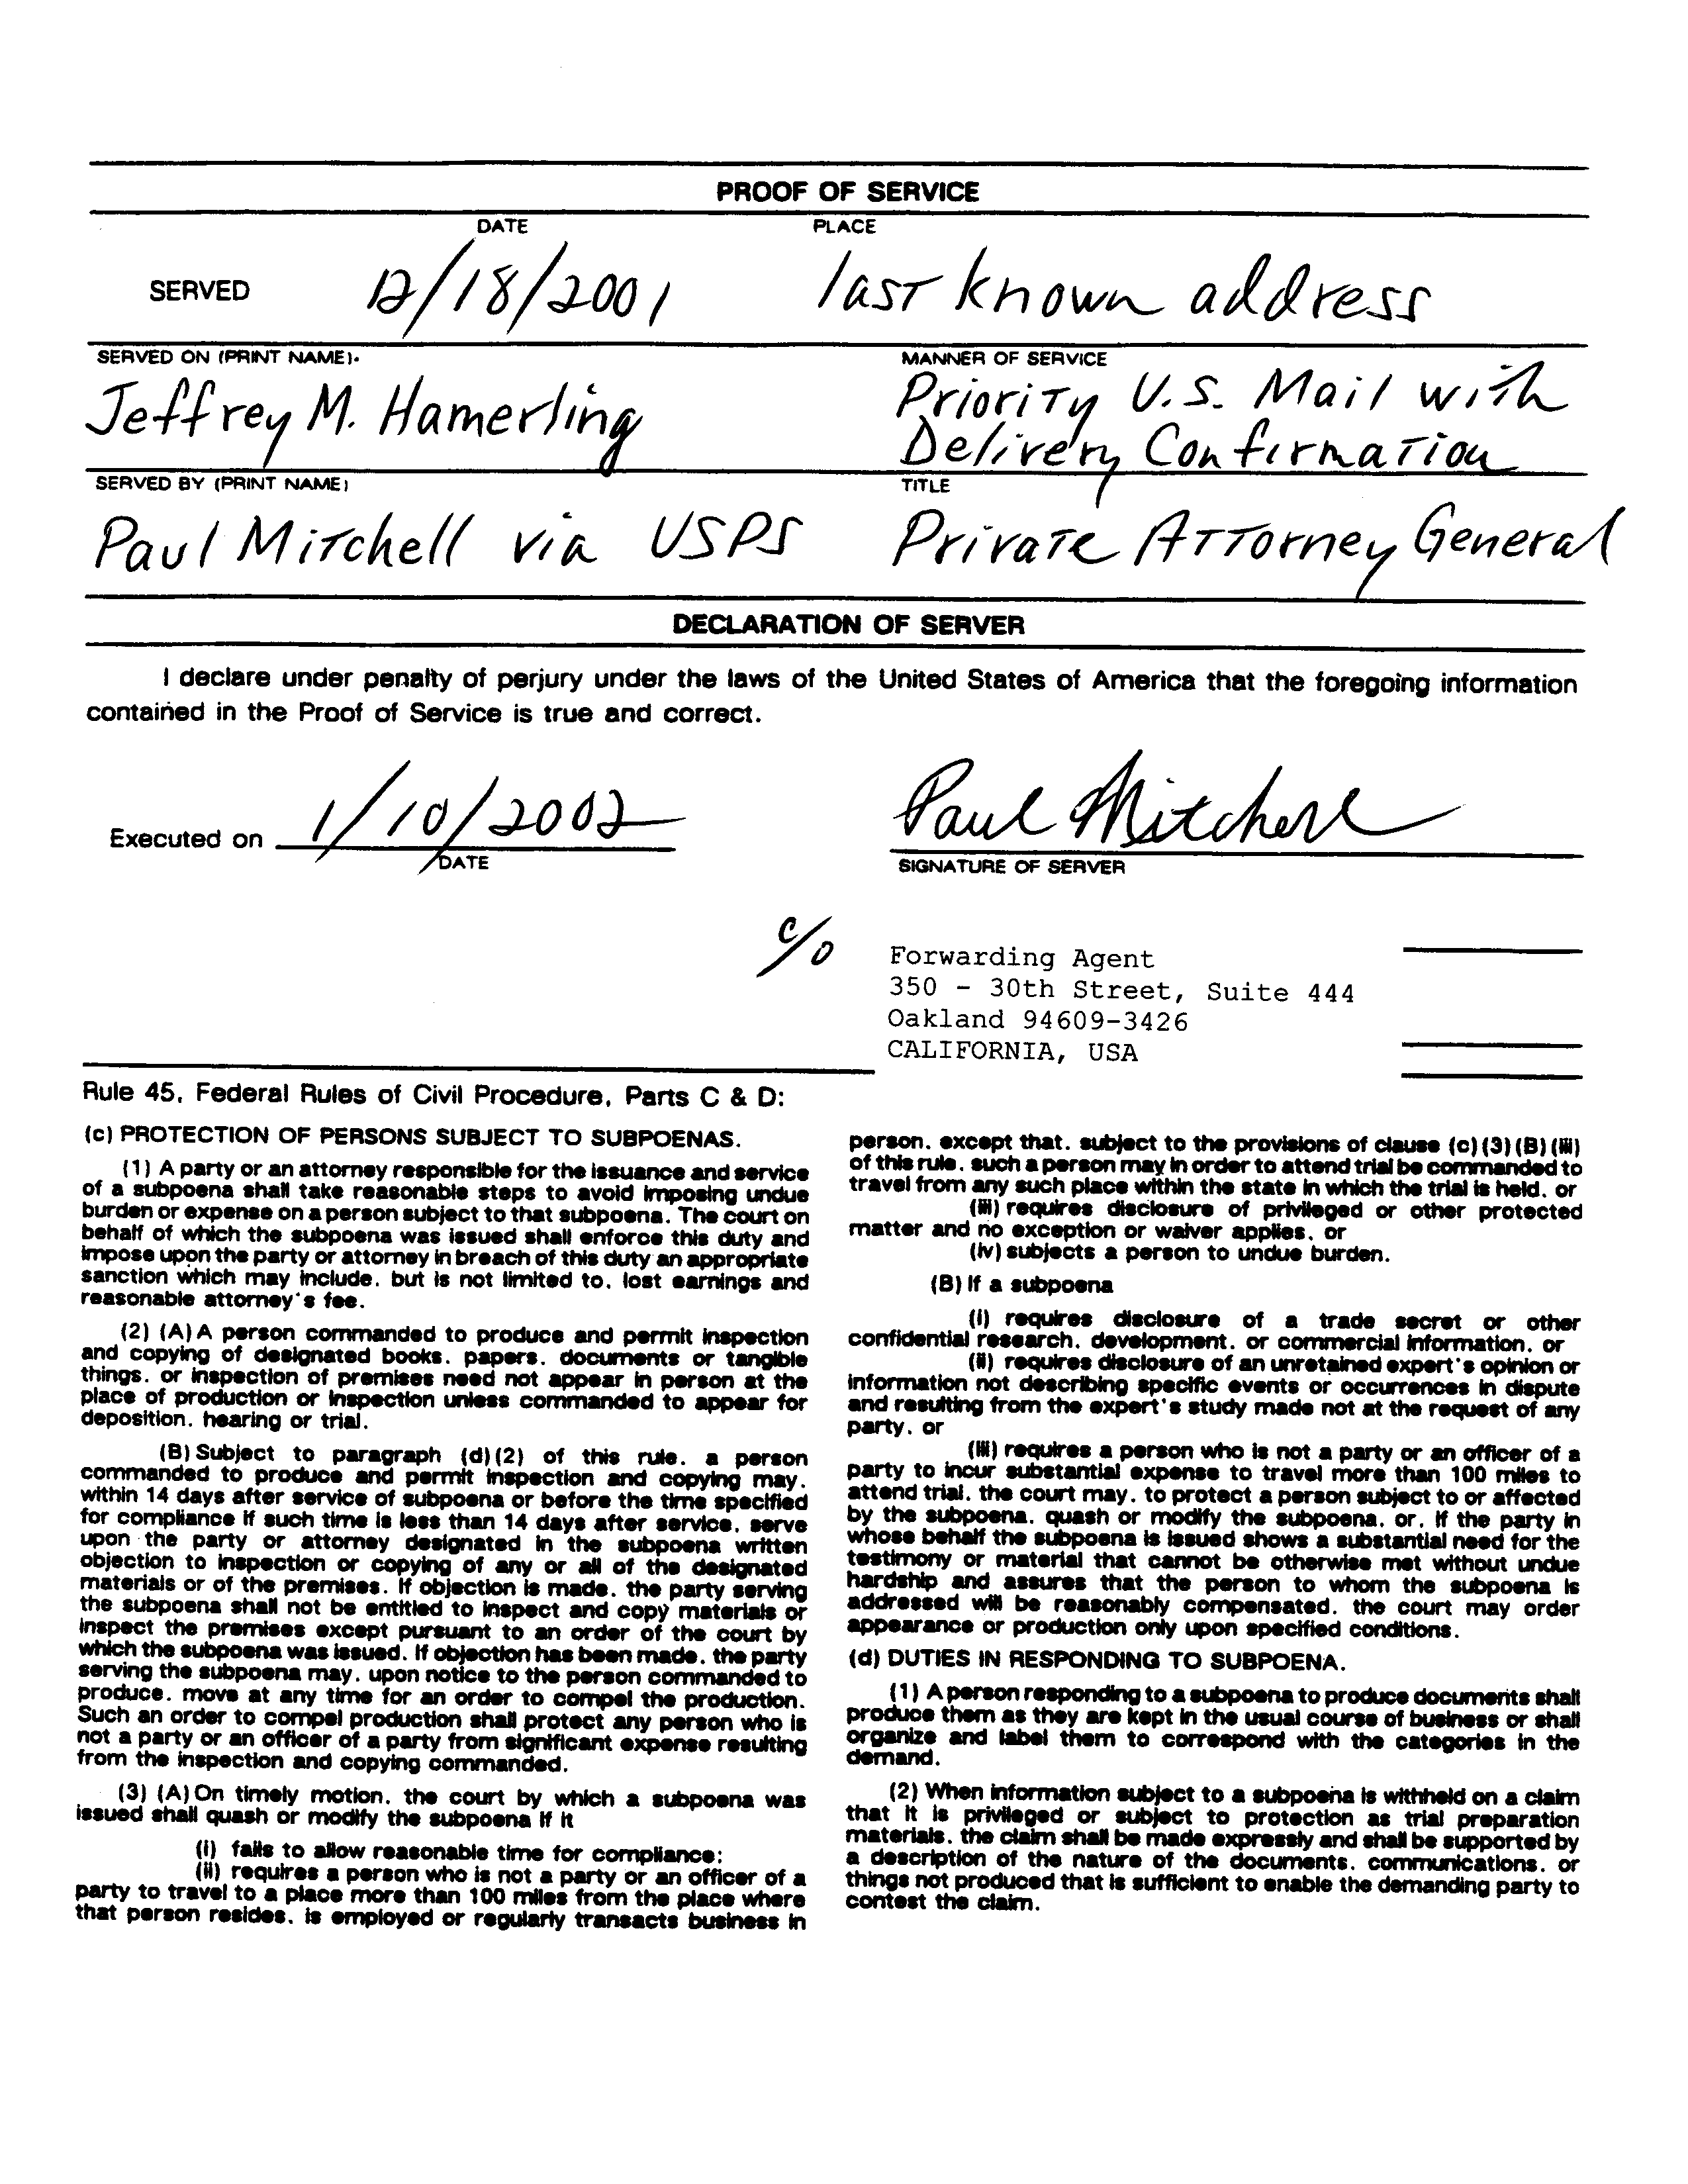 PROOF OF SERVICE
DATE PLACE
SERVED 12/18/2001 last known address
SERVED ON (PRINT NAME). MANNER OF SERVICE
Jeffrey M. Hamerling Priority U.S. Mail with
Delivery Confirmation
SERVED BY (PRINT NAME) TITLE
Paul Mitchell via USPS Private Attorney General
DECLARATION OF SERVER
I declare under penalty of perjury under the laws of the United States of America that the foregoing information
contained in the Proof of Service is true and correct.
Executed on 1/10/2002 Paul Mitchell
DATE SIGNATURE OF SERVER
c/o Forwarding Agent
350 - 30th Street, Suite 444
Oakland 94609-3426
CALIFORNIA, USA
Rule 45, Federal Rules of Civil Procedure, Parts C & D:
(c) PROTECTION OF PERSONS SUBJECT TO SUBPOENAS.
(1) A party or an attorney responsible for the issuance and service
of a subpoena shall take reasonable steps to avoid imposing undue
burden or expense on a person subject to that subpoena. The court on
behalf of which the subpoena was issued shall enforce this duty and
impose upon the party or attorney in breach of this duty an appropriate
sanction which may include, but is not limited to, lost earnings and
reasonable attorney's fee.
(2) (A) A person commanded to produce and permit inspection
and copying of designated books, papers, documents or tangible
things, or inspection of premises need not appear in person at the
place of production or inspection unless commanded to appear for
deposition, hearing or trial.
(B) Subject to paragraph (d)(2) of this rule, a person
commanded to produce and permit inspection and copying may,
within 14 days after service of subpoena or before the time specified
for compliance if such time is less than 14 days after service, serve
upon the party or attorney designated in the subpoena written
objection to inspection or copying of any or all of the designated
materials or of the premises. If objection is made, the party serving
the subpoena shall not be entitled to inspect and copy materials or
inspect the premises except pursuant to an order of the court by
which the subpoena was issued. If objection has been made, the party
serving the subpoena may, upon notice to the person commanded to
produce, move at any time for an order to compel the production.
Such an order to compel production shall protect any person who is
not a party or an officer of a party from significant expense resulting
from the inspection and copying commanded.
(3) (A) On timely motion, the court by which a subpoena was
issued shall quash or modify the subpoena if it
(i) fails to allow reasonable time for compliance;
(ii) requires a person who is not a party or an officer of a
party to travel to a place more than 100 miles from the place where
that person resides, is employed or regularly transacts business in
person, except that, subject to the provisions of clause (c)(3)(B)(iii)
of this rule, such a person may in order to attend trial be commanded to
travel from any such place within the state in which the trial is held, or
(iii) requires disclosure of privileged or other protected
matter and no exception or waiver applies, or
(iv) subjects a person to undue burden.
(B) If a subpoena
(i) requires disclosure of a trade secret or other
confidential research, development, or commercial information, or
(ii) requires disclosure of an unretained expert's opinion or
information not describing specific events or occurrences in dispute
and resulting from the expert's study made not at the request of any
party, or
(iii) requires a person who is not a party or an officer of a
party to incur substantial expense to travel more than 100 miles to
attend trial, the court may, to protect a person subject to or affected
by the subpoena, quash or modify the subpoena, or, if the party in
whose behalf the subpoena is issued shows a substantial need for the
testimony or material that cannot be otherwise met without undue
hardship and assures that the person to whom the subpoena is
addressed will be reasonably compensated, the court may order
appearance or production only upon specified conditions.
(d) DUTIES IN RESPONDING TO SUBPOENA.
(1) A person responding to a subpoena to produce documents shall
produce them as they are kept in the usual course of business or shall
organize and label them to correspond with the categories in the
demand.
(2) When information subject to a subpoena is withheld on a claim
that it is privileged or subject to protection as trial preparation
materials, the claim shall be made expressly and shall be supported by
a description of the nature of the documents, communications, or
things not produced that is sufficient to enable the demanding party to
contest the claim.